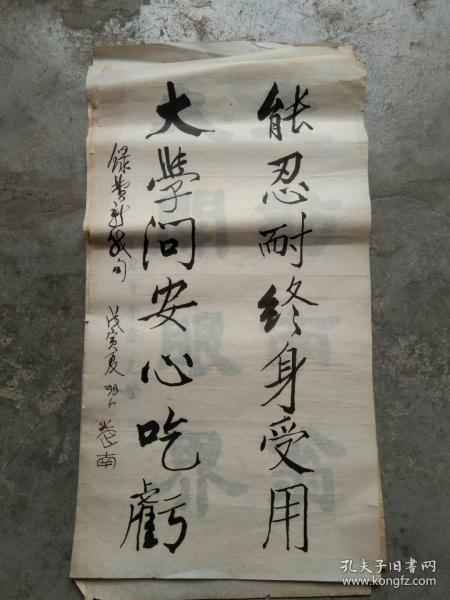 能忍耐终身受用
大學问安心吃虧
录费新我句 戊寅夏 98.6
孔夫子旧书网
www.kongfz.com